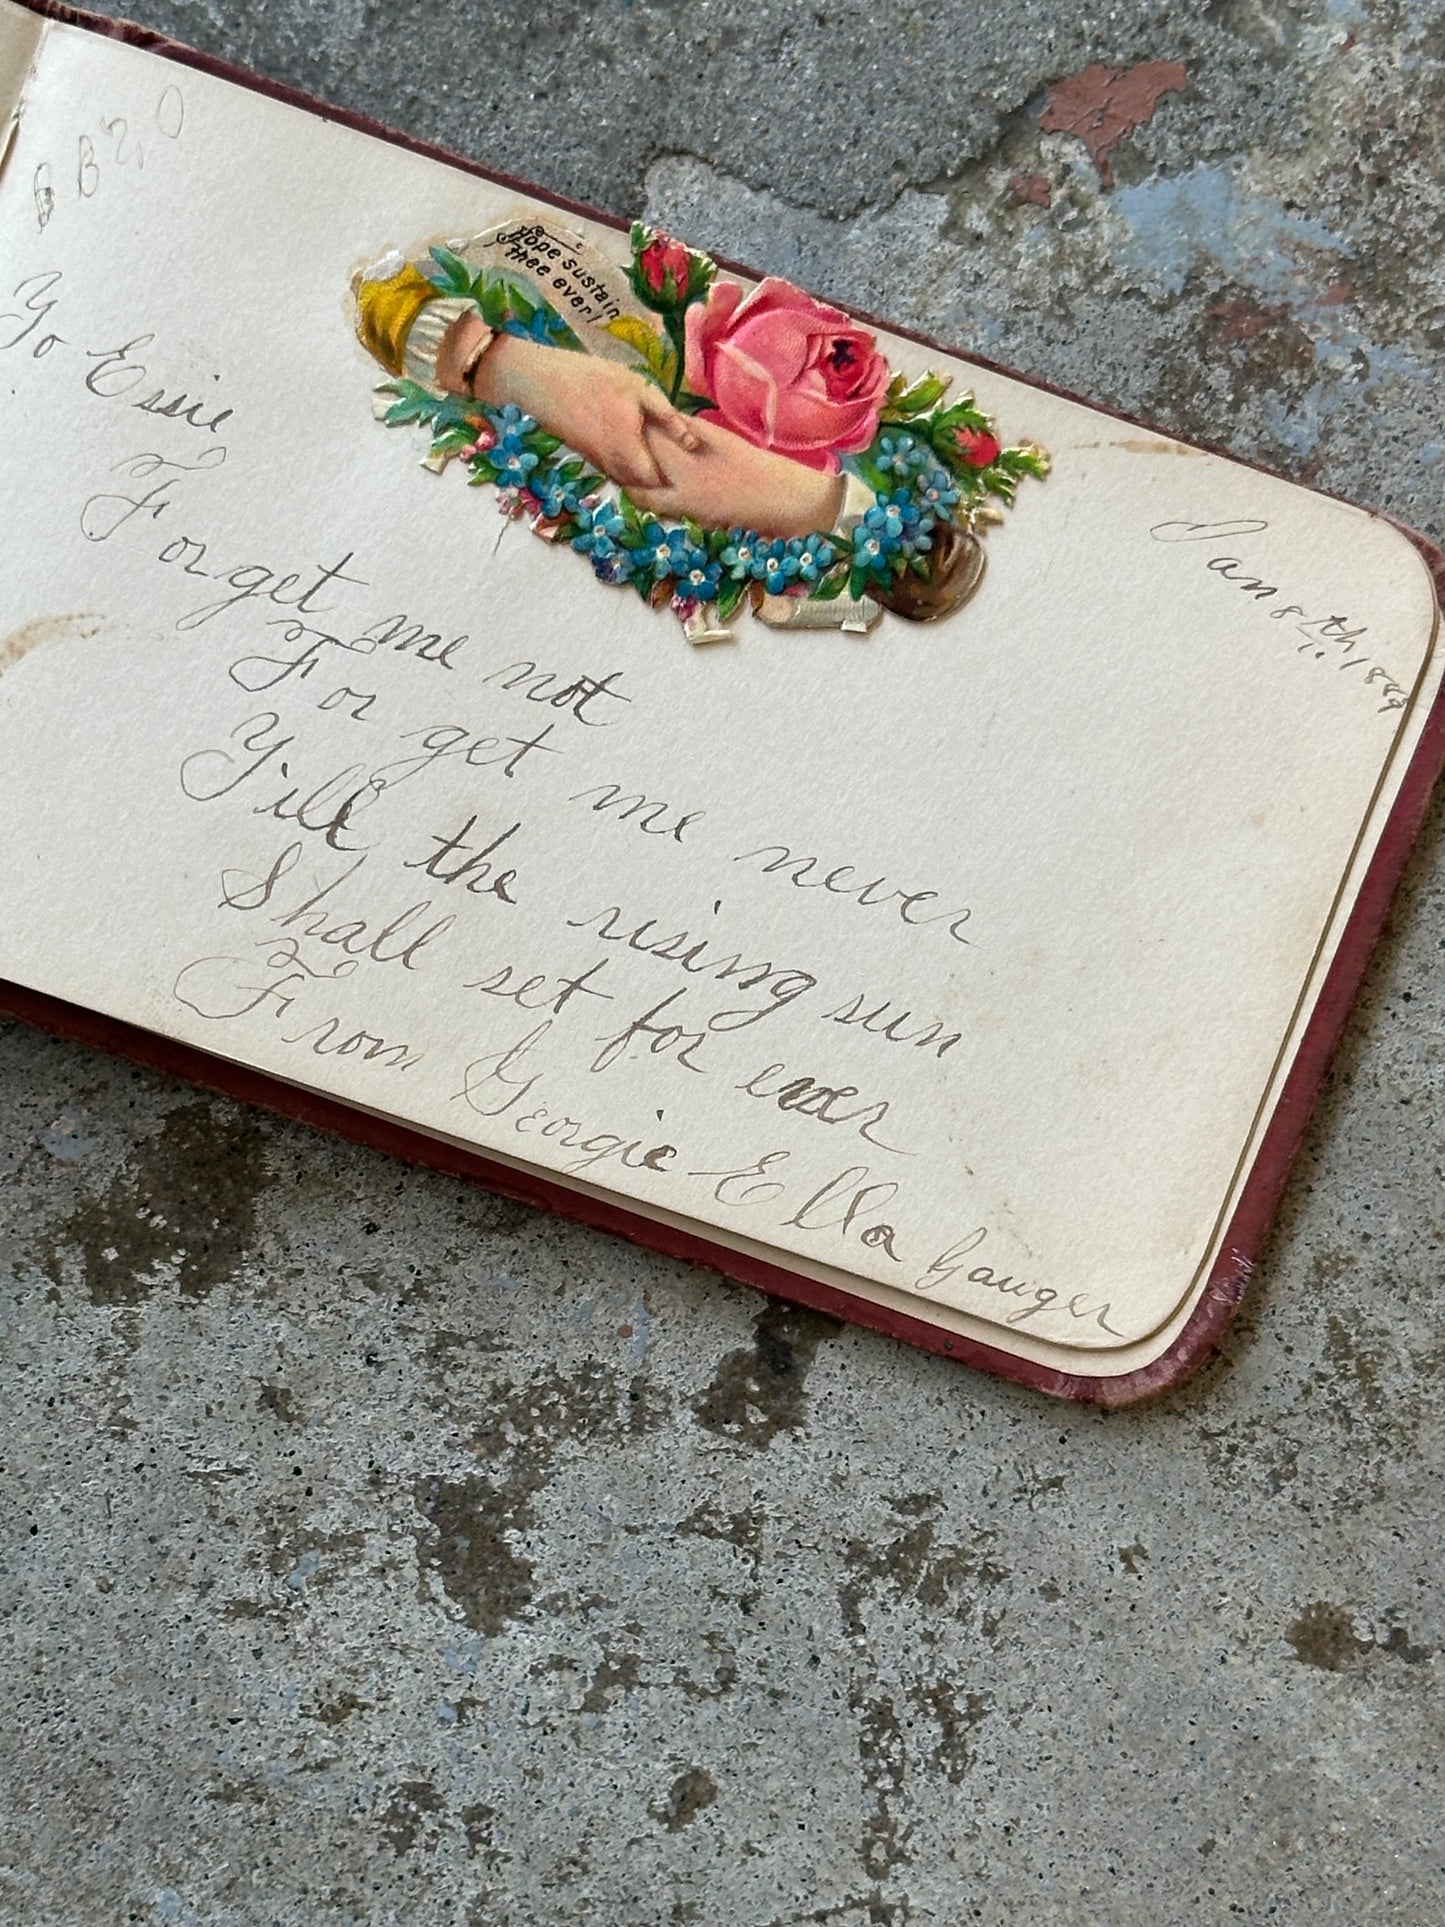 Hope sustain
Thee ever!
To Essie
Jan 8th
Forget me not
Forget me never
Till the rising sun
Shall set for ever
From Georgie Ella Gauger